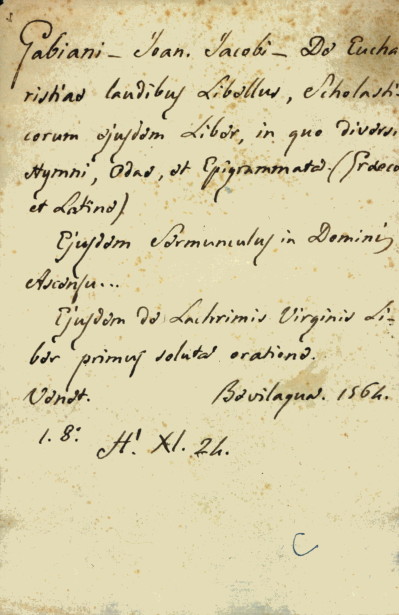 Gabiani - Joan. Jacobi - De Eucha
ristiae laudibus Libellus, Scholasti-
corum ejusdem Liber, in quo diversi
Hymni, Odae, et Epigrammata. (Graece
et Latine)
Ejusdem Sermunculus in Domini
Ascensu...
Ejusdem de Lachrimis Virginis Li-
ber primus soluta oratione.
Venet. Bevilaqua. 1564.
1. 8:
H! XI. 24.
C